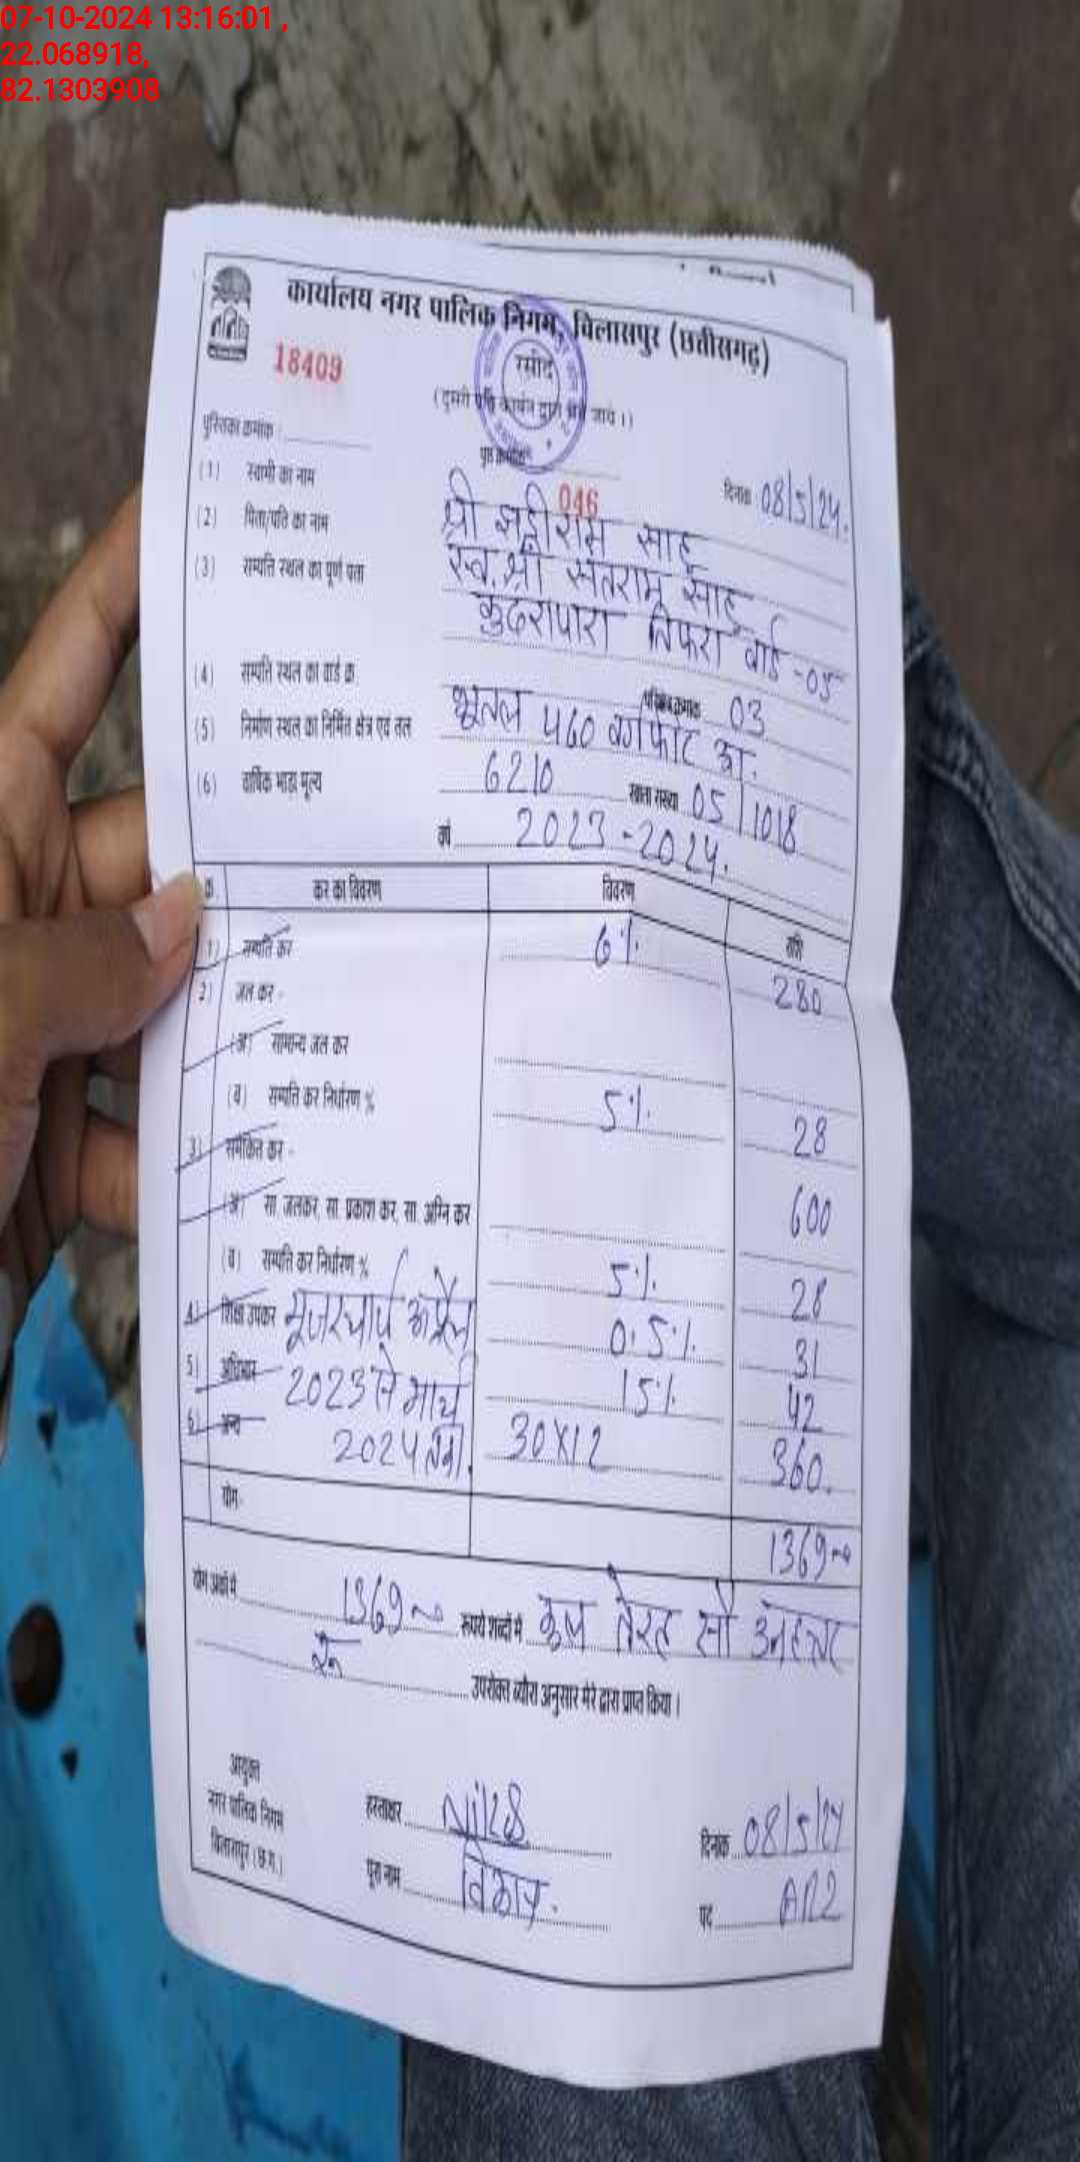 07-10-2024 13:16:01 ,
22.068918,
82.1303908
कार्यालय नगर पालिक निगम, बिलासपुर (छत्तीसगढ़)
18409
रसीद
(दूसरी प्रति कार्बन द्वारा जाये ।)
पुस्तिका क्रमांक :
पृष्ठ क्रमांक
046
दिनांक 08/5/24.
(1) स्वामी का नाम श्री साहू
(2) पिता/पति का नाम स्व. श्री संतराम साहू
(3) सम्पत्ति स्थल का पूर्ण पता कुदरापारा तिफरा वार्ड -05
(4) सम्पत्ति स्थल का वार्ड क्र परिक्षेत्र क्रमांक 03
(5) निर्माण स्थल का निर्मित क्षेत्र एवं तल भूतल 460 वर्गफीट का.
(6) वार्षिक भाड़ा मूल्य 6210 खाता संख्या 05/1018
वर्ष 2023-2024.
क्र. कर का विवरण विवरण राशि
1) सम्पत्ति कर 6% 280
2) जल कर -
(अ) सामान्य जल कर
(ब) सम्पत्ति कर निर्धारण % 5% 28
3) समेकित कर - 600
(अ) सा. जलकर, सा. प्रकाश कर, सा. अग्नि कर
(ब) सम्पत्ति कर निर्धारण % 5% 28
4) शिक्षा उपकर यूजरचार्ज अप्रैल 0.5% 31
5) अधिभार 2023 से मार्च 15% 42
6) अन्य 2024 तक. 30X12 360.
योग- 1369
योग अंकों में 1369 रूपये शब्दों में कुल तेरह सौ उनहत्तर
रू
उपरोक्त ब्यौरा अनुसार मेरे द्वारा प्राप्त किया ।
आयुक्त
नगर पालिक निगम
बिलासपुर (छ.ग.)
हस्ताक्षर
दिनांक 08/5/24
पूरा नाम विकास.
पद